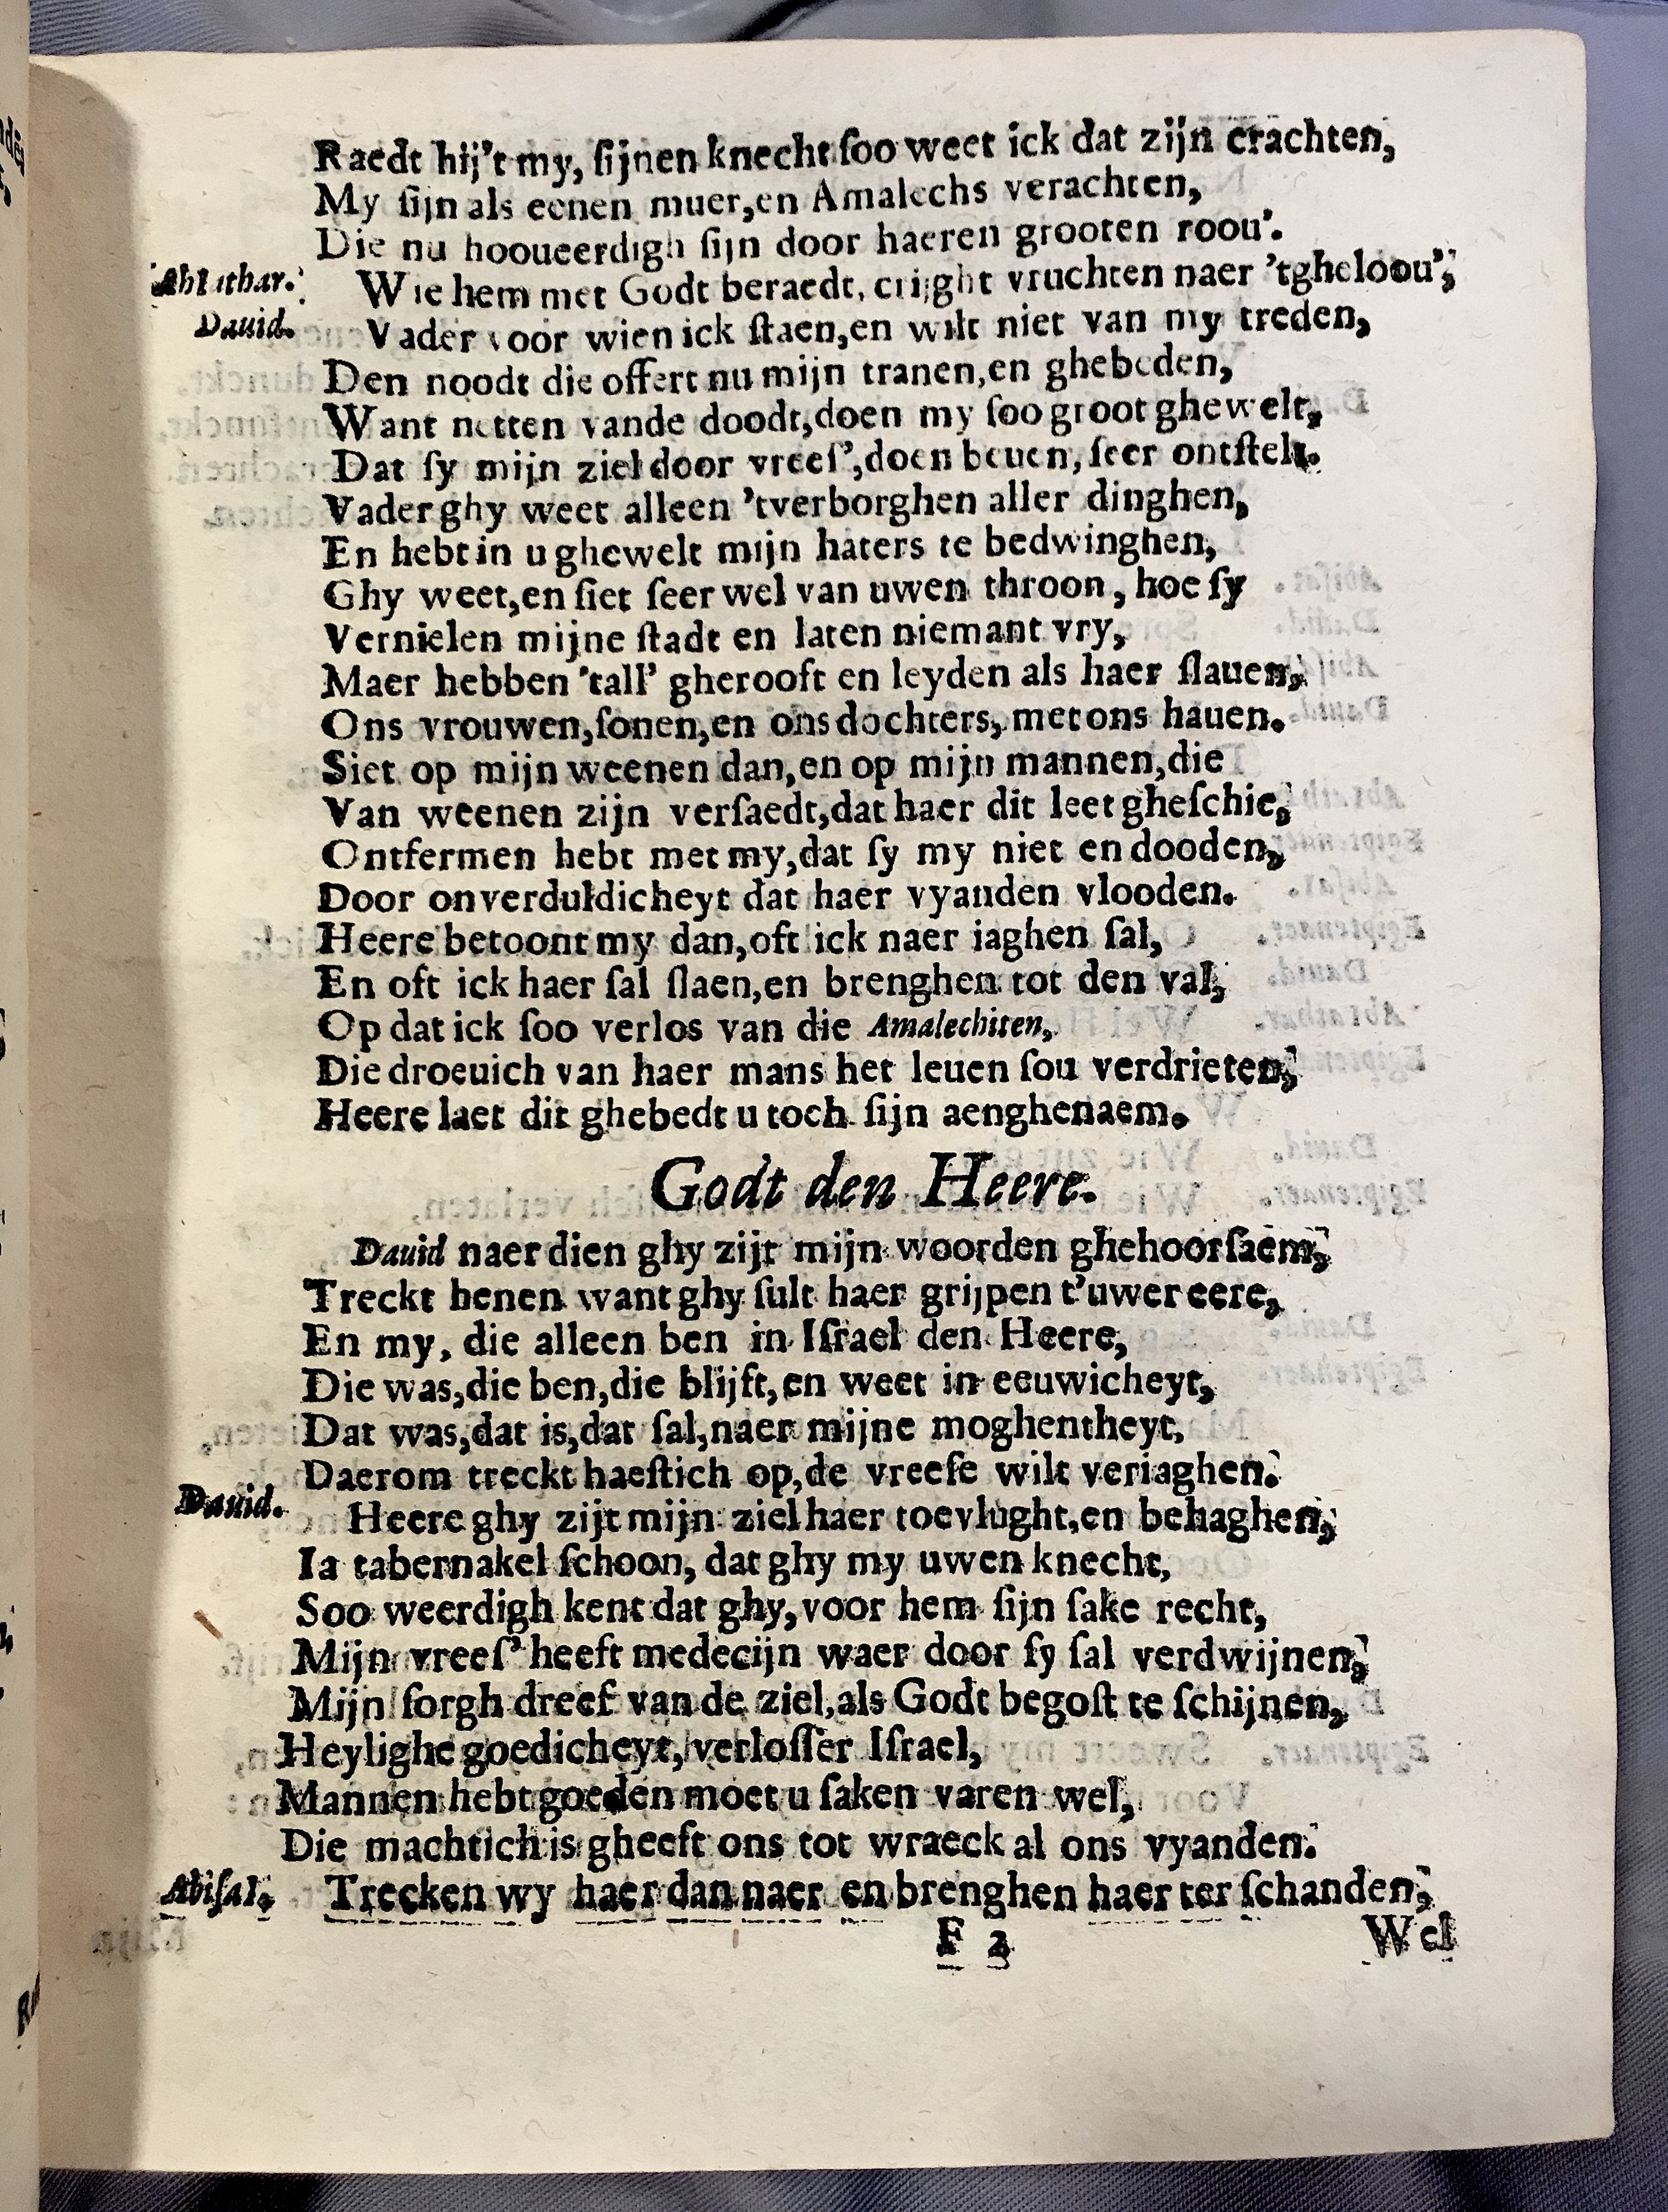 Raedt hij't my, sijnen knecht soo weet ick dat zijn crachten,
My sijn als eenen muer, en Amalechs verachten,
Die nu hooueerdigh sijn door haeren grooten roou'.
Abiathar. Wie hem met Godt beraedt, crijght vruchten naer 'tgheloou',
Dauid. Vader voor wien ick staen, en wilt niet van my treden,
Den noodt die offert nu mijn tranen, en ghebeden,
Want netten vande doodt, doen my soo groot ghewelt,
Dat sy mijn ziel door vrees', doen beuen, seer ontstelt.
Vader ghy weet alleen 'tverborghen aller dinghen,
En hebt in u ghewelt mijn haters te bedwinghen,
Ghy weet, en siet seer wel van uwen throon, hoe sy
Vernielen mijne stadt en laten niemant vry,
Maer hebben 'tall' gherooft en leyden als haer slauen,
Ons vrouwen, sonen, en ons dochters, met ons hauen.
Siet op mijn weenen dan, en op mijn mannen, die
Van weenen zijn versaedt, dat haer dit leet gheschie,
Ontfermen hebt met my, dat sy my niet en dooden,
Door onverduldicheyt dat haer vyanden vlooden.
Heere betoont my dan, oft ick naer iaghen sal,
En oft ick haer sal slaen, en brenghen tot den val,
Op dat ick soo verlos van die Amalechiten,
Die droeuich van haer mans het leuen sou verdrieten,
Heere laet dit ghebedt u toch sijn aenghenaem.
Godt den Heere.
Dauid naer dien ghy zijt mijn woorden ghehoorsaem,
Treckt henen want ghy sult haer grijpen t'uwer eere,
En my, die alleen ben in Israel den Heere,
Die was, die ben, die blijft, en weet in eeuwicheyt,
Dat was, dat is, dat sal, naer mijne moghentheyt,
Daerom treckt haestich op, de vreese wilt veriaghen.
Dauid. Heere ghy zijt mijn ziel haer toevlught, en behaghen,
Ia tabernakel schoon, dat ghy my uwen knecht,
Soo weerdigh kent dat ghy, voor hem sijn sake recht,
Mijn vrees' heeft medecijn waer door sy sal verdwijnen,
Mijn sorgh dreef van de ziel, als Godt begost te schijnen,
Heylighe goedicheyt, verlosser Israel,
Mannen hebt goeden moet u saken varen wel,
Die machtich is gheeft ons tot wraeck al ons vyanden.
Abisai. Trecken wy haer dan naer en brenghen haer ter schanden,
F 2 Wel